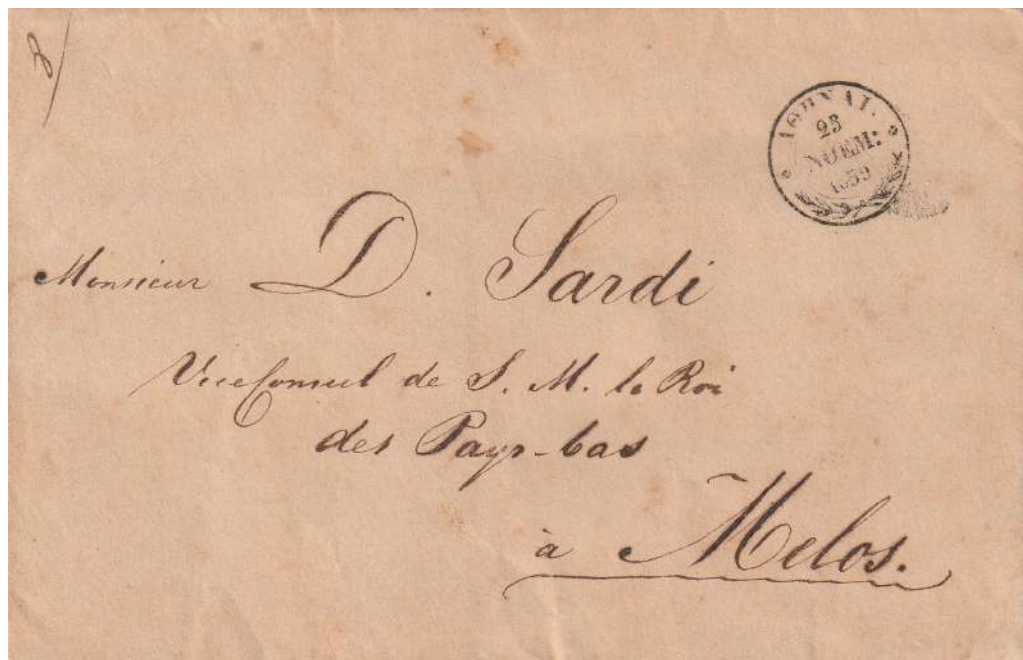 8
ΑΘΗΝΑΙ.
25
ΝΟΕΜ:
1859
Monsieur D. Sardi
ViceConsul de S. M. le Roi
des Pays-bas
à Melos.